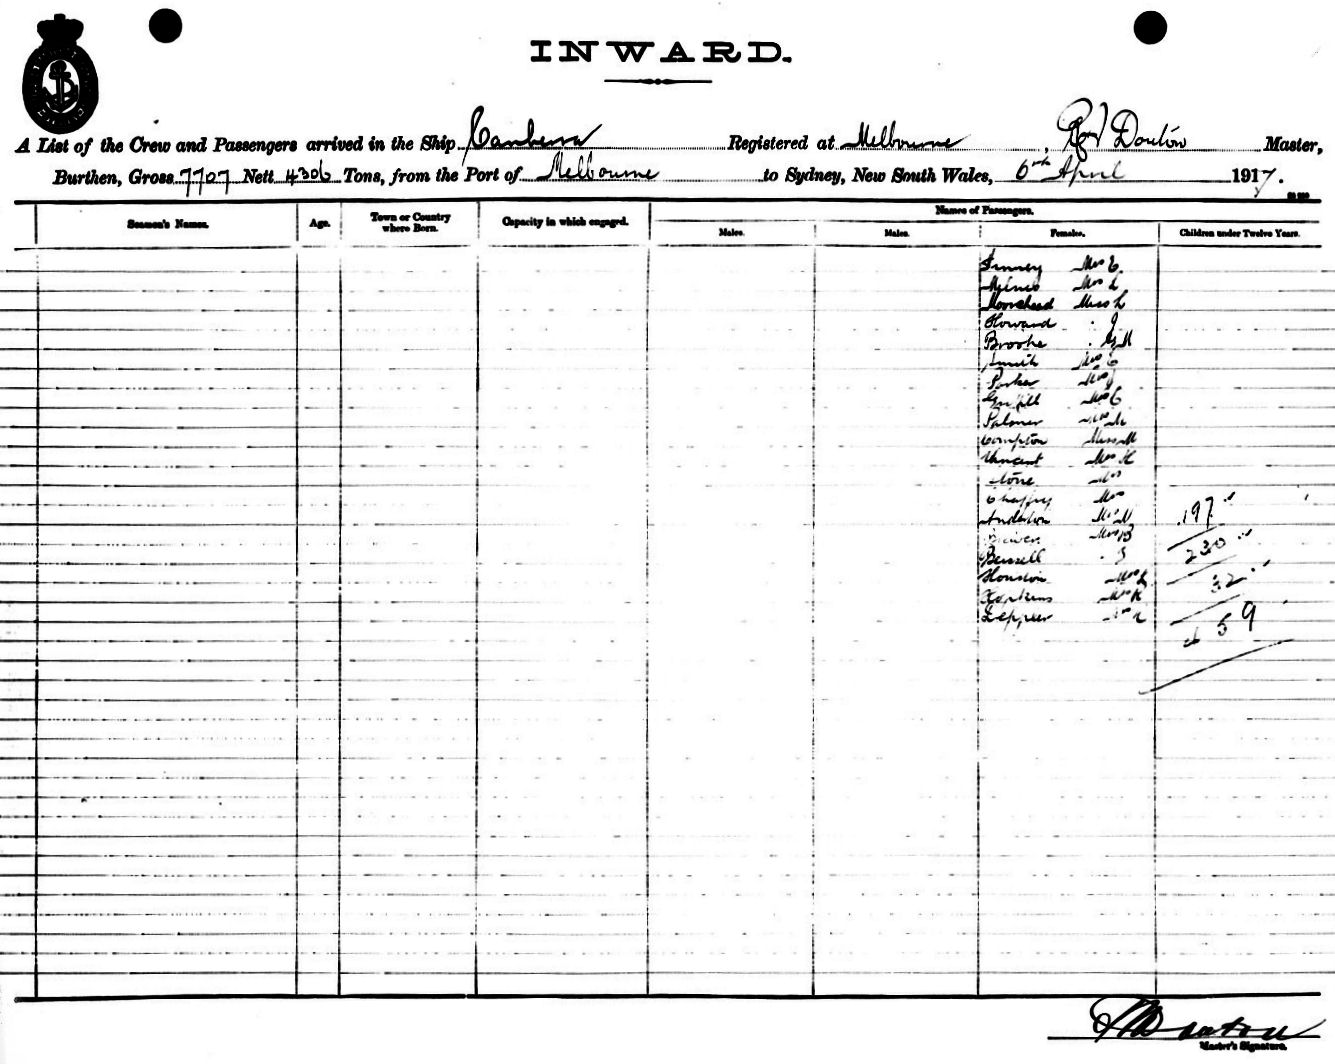 INWARD.
A List of the Crew and Passengers arrived in the Ship Canberra Registered at Melbourne Douton Master,
Burthen, Gross 7707 Nett 4306 Tons, from the Port of Melbourne to Sydney, New South Wales, 6th April 1917.
Names of Passengers.
Seamen's Names. Age. Town or Country where Born. Capacity in which engaged. Males. Males. Females. Children under Twelve Years.
Finney Mrs E.
Milnes Mrs L
Moorehead Miss L
Howard . J
Brooke . G M
Smith Mrs E
Parker Mrs J
Mrs C
Palmer Mrs M
Compton Miss M
Vincent Mrs H
Stone Mrs
Chaffey Mrs
Anderson Mrs M 197
Mrs B
Bessell 230
Houston Mrs 32
Hopkins Mrs K
459
Douton
Master's Signature.